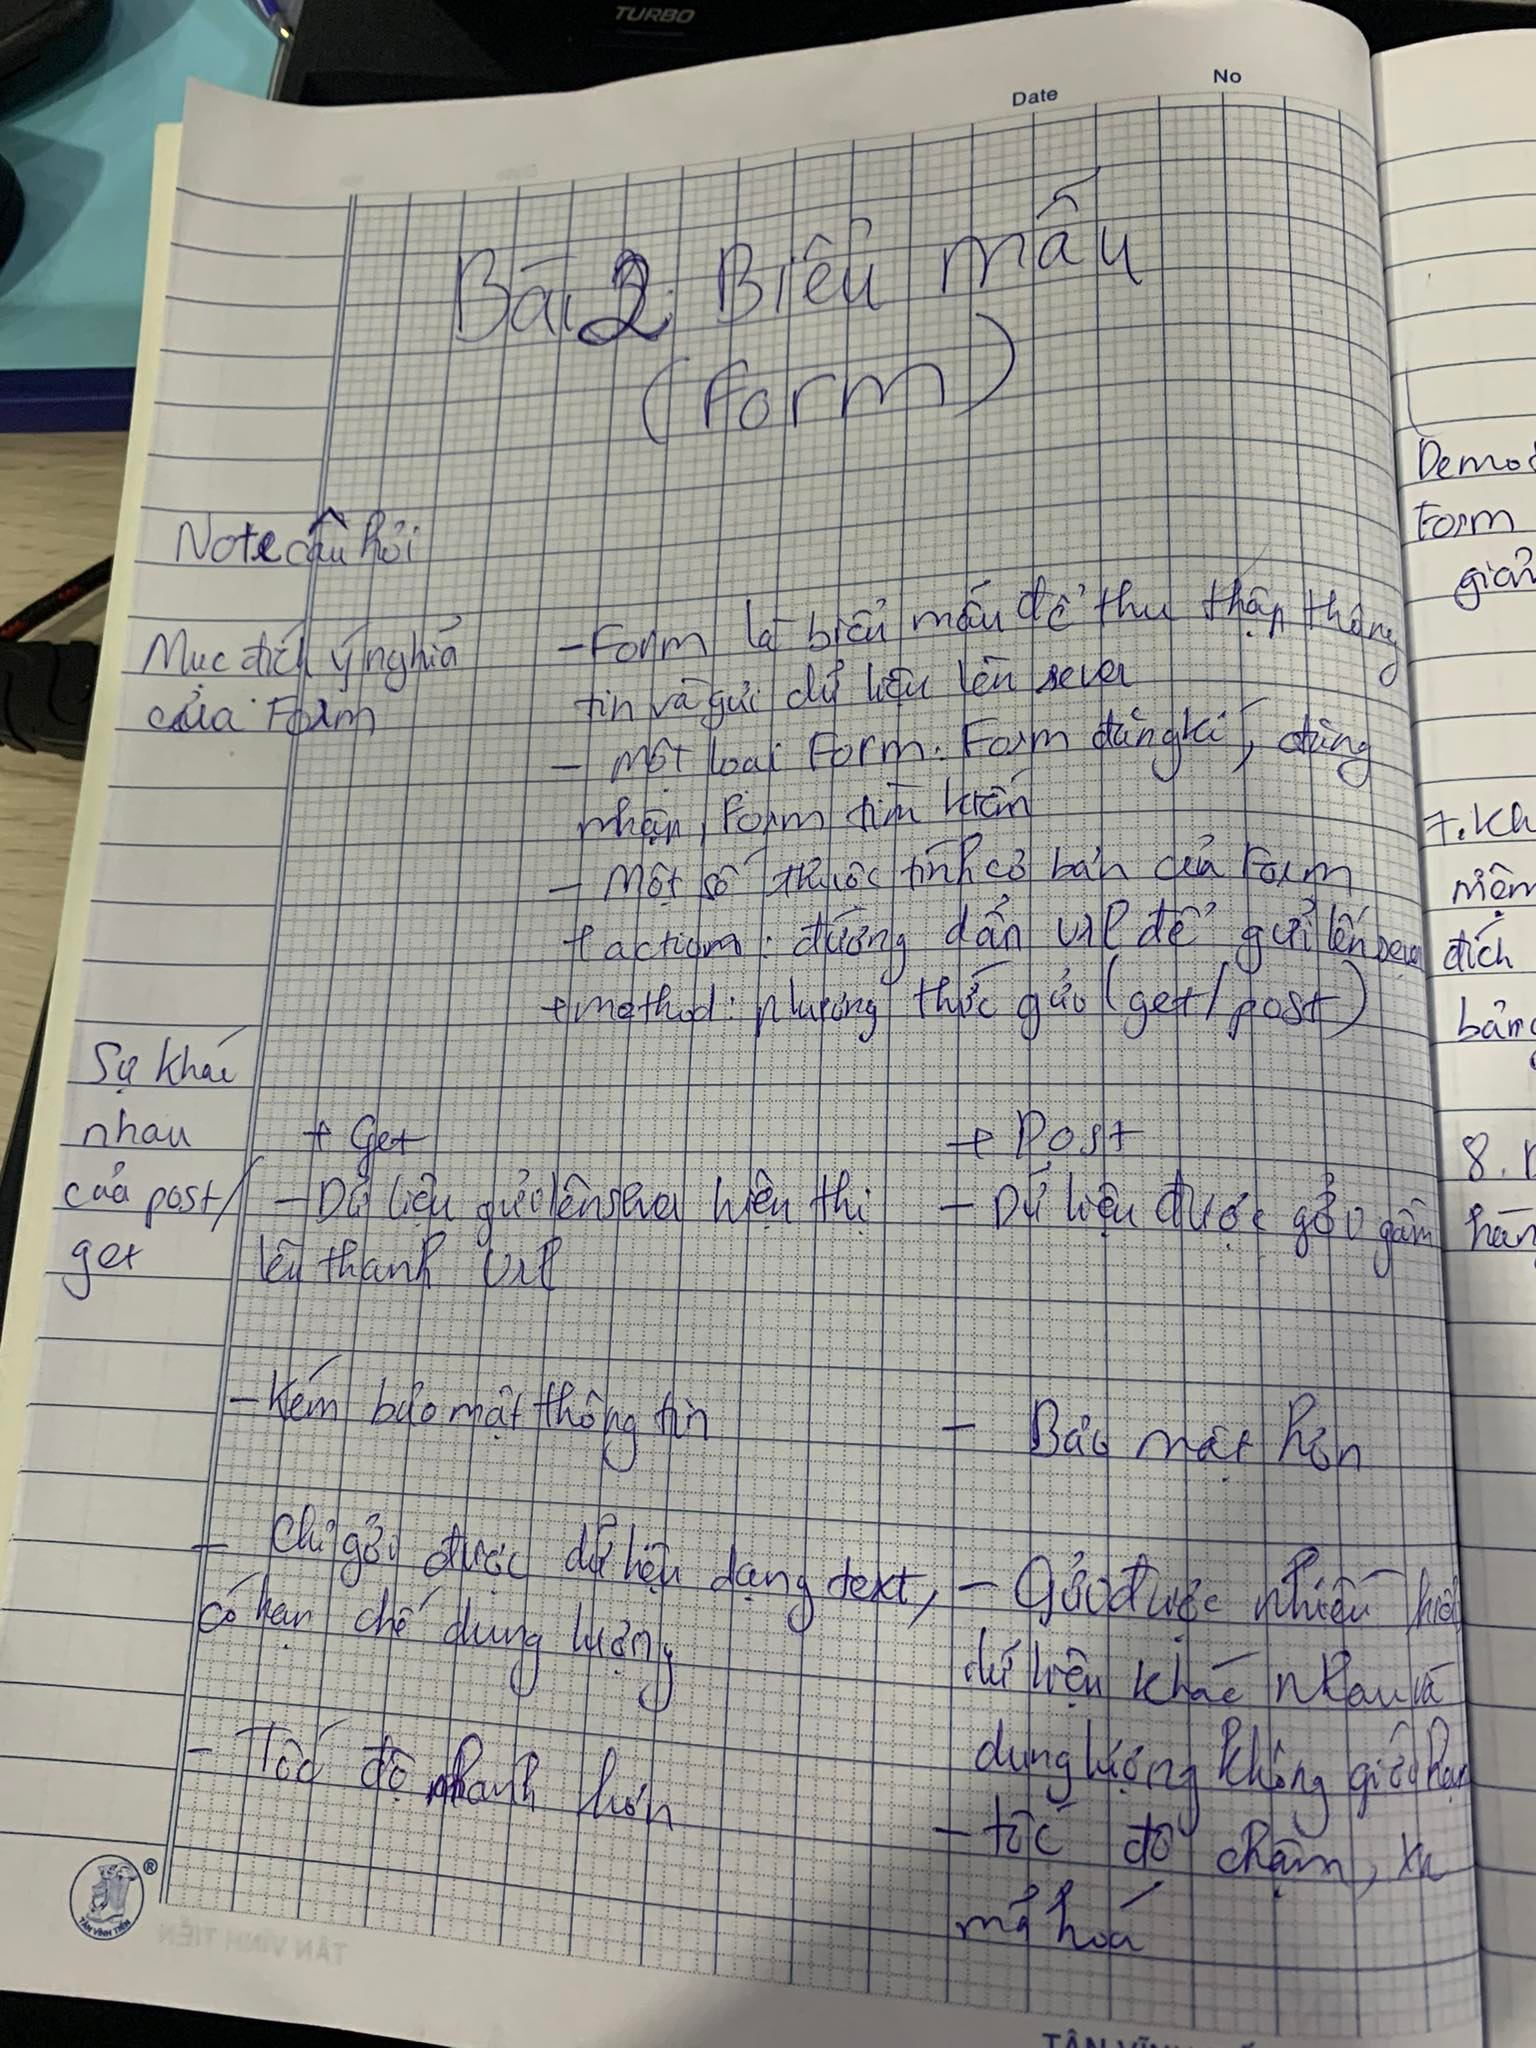 TURBO
Date
No
Bài 2: Biểu mẫu
(Form)
Note câu hỏi
Mục đích ý nghĩa
của Form
- Form là biểu mẫu để thu thập thông
tin và gửi dữ liệu lên sever
- Một loại Form: Form đăng kí, đăng
nhập, Form tìm kiếm
- Một số thuộc tính cơ bản của Form
+ action: đường dẫn url để gửi lên sever
+ method: phương thức gửi (get/post)
Sự khác
nhau
của post/
get
+ Get
- Dữ liệu gửi lên sever hiện thị
lên thanh url
- Kém bảo mật thông tin
- Chỉ gởi được dữ liệu dạng text,
có hạn chế dung lượng
- Tốc độ nhanh hơn
+ Post
- Dữ liệu được gởi gầm
- Bảo mật hơn
- Gửi được nhiều
dữ liệu khác nhau và
dung lượng không giới hạn
- tốc độ chậm,
mã hoá
Form
7.
đích
8.
TÂN VĨNH TIẾN
®